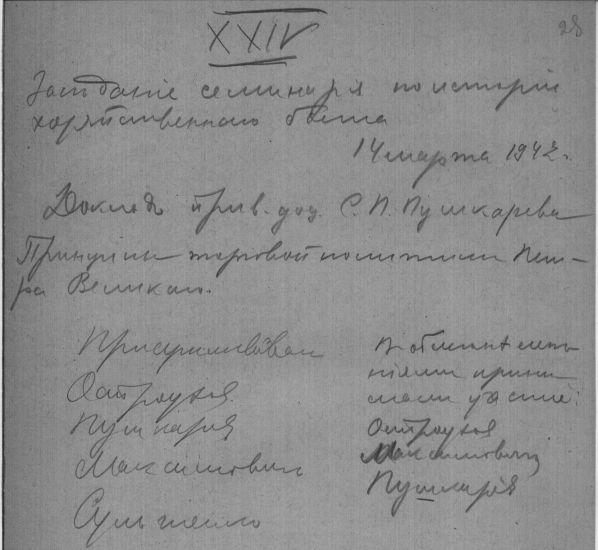 XXIV
28
Заседаніе семинарія по исторіи
хозяйственного быта
14 марта 1942 г.
Доклад прив. доц. С. Г. Пушкарева
Принципы торговой политики Пет-
ра Великаго.
Присутствовали
Остроухов
Пушкарев
Максимович
В обмене мне-
ніями прини-
мали участие:
Остроухов
Максимович
Пушкарев